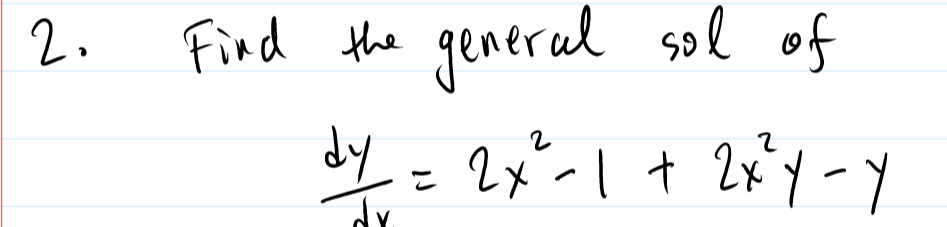 2. Find the general sol of
dy/dx = 2x² - 1 + 2x²y - y